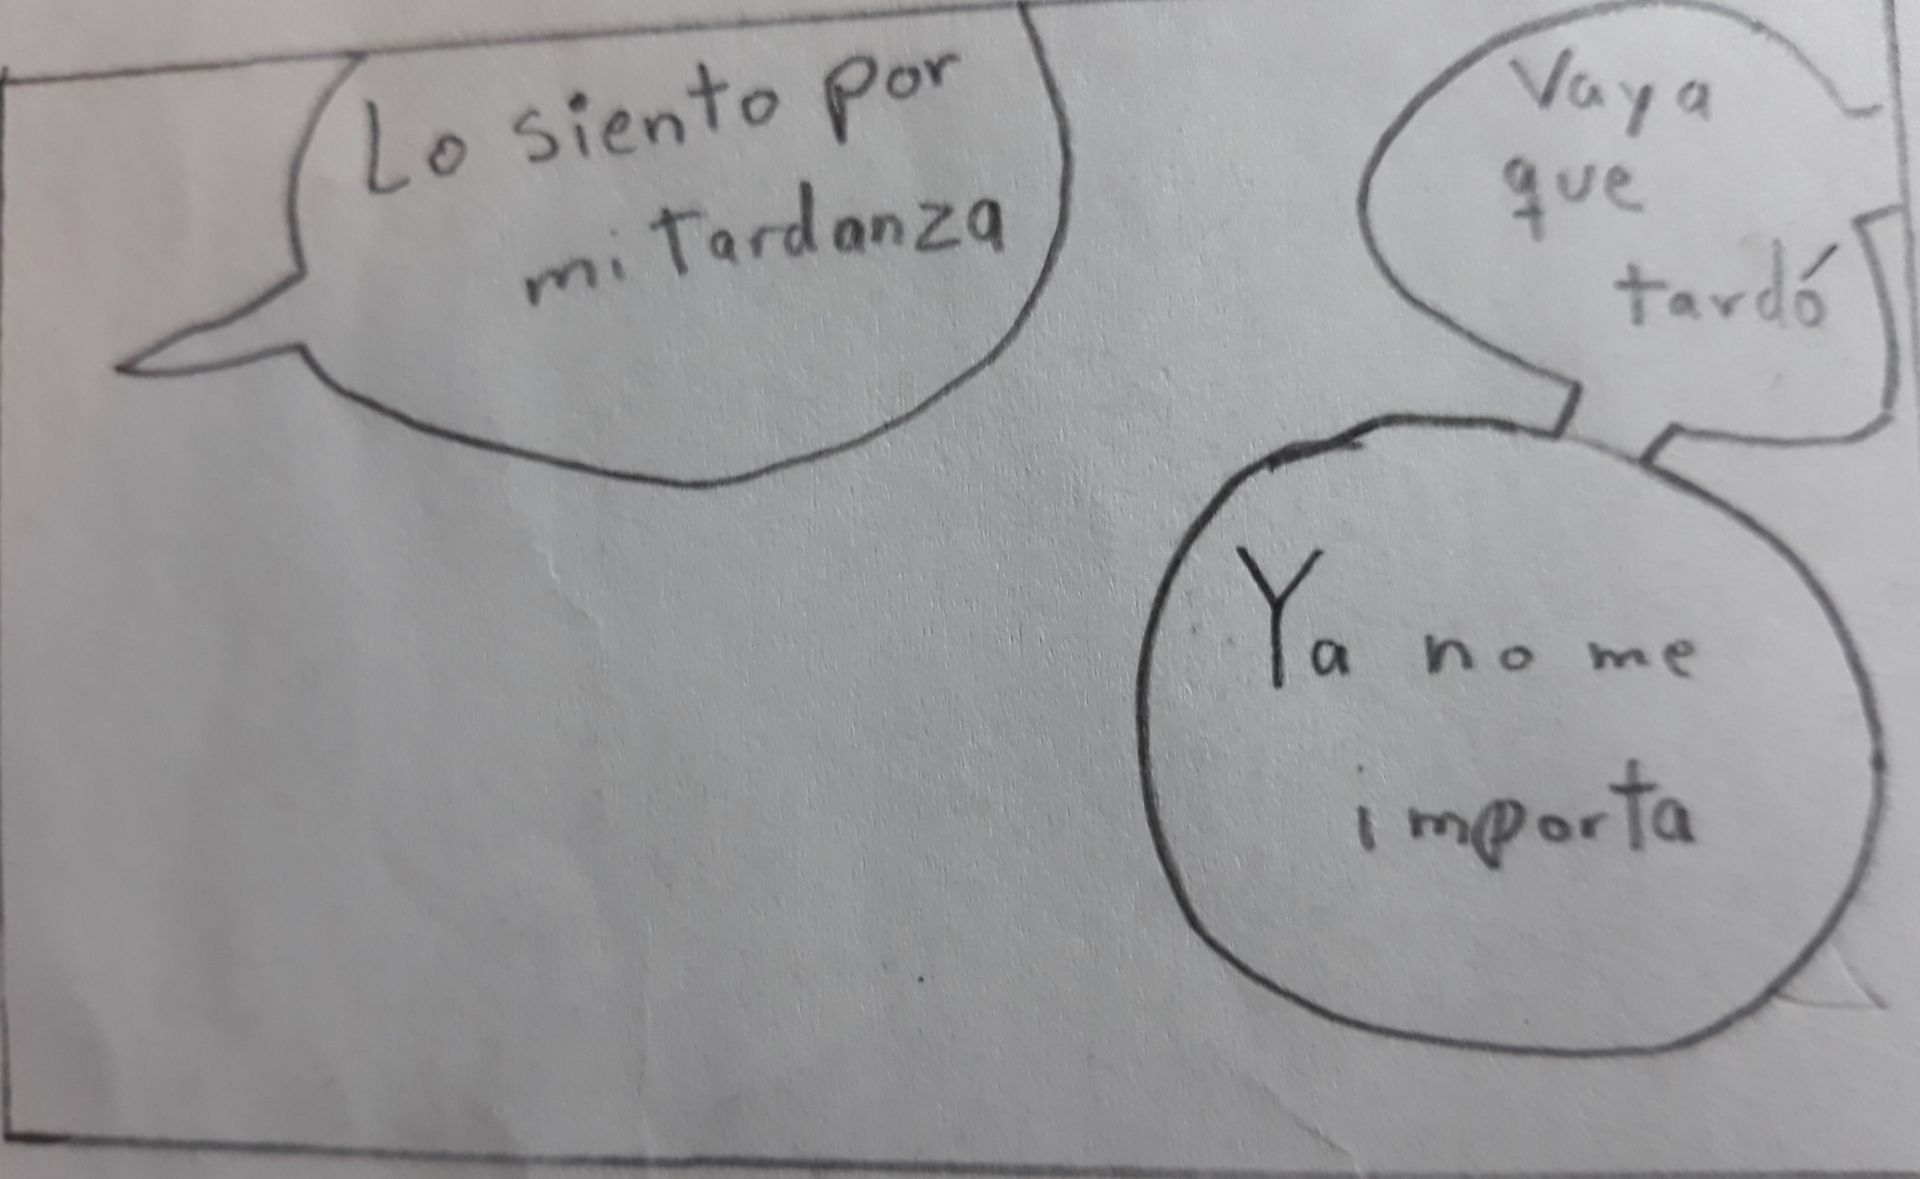 Lo siento por
mi tardanza
Vaya
que
tardó
Ya no me
importa